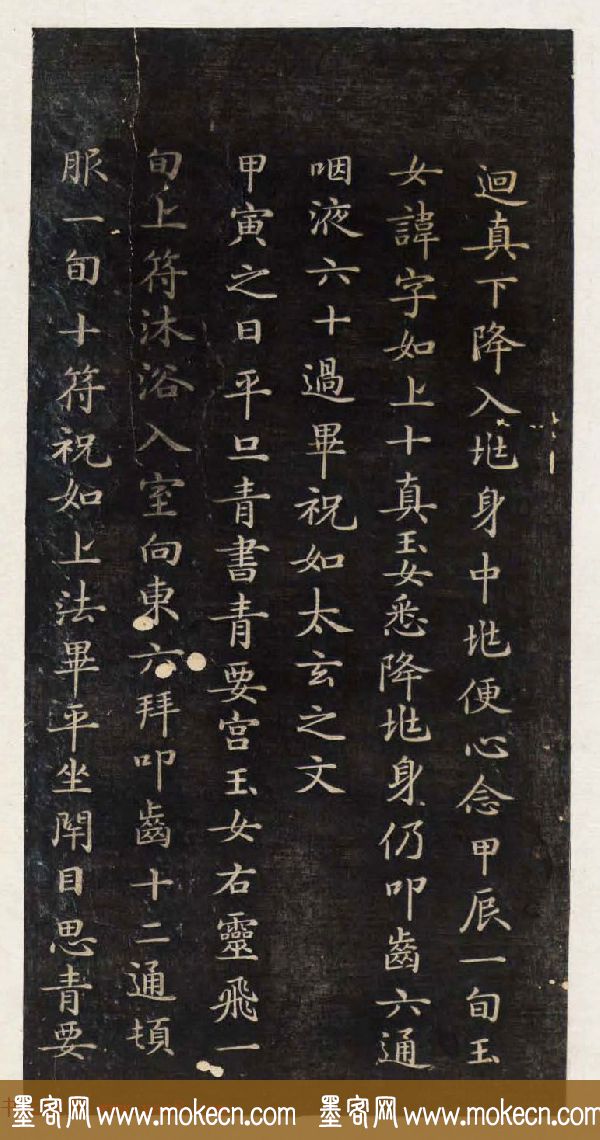 迴真下降入兆身中兆便心念甲辰一旬玉
女諱字如上十真玉女悉降兆身仍叩齒六通
咽液六十過畢祝如太玄之文
甲寅之日平旦青書青要宫玉女右靈飛一
旬上符沐浴入室向東六拜叩齒十二通頓
服一旬十符祝如上法畢平坐閇目思青要
墨客网 www.mokecn.com 墨客网 www.mokecn.com